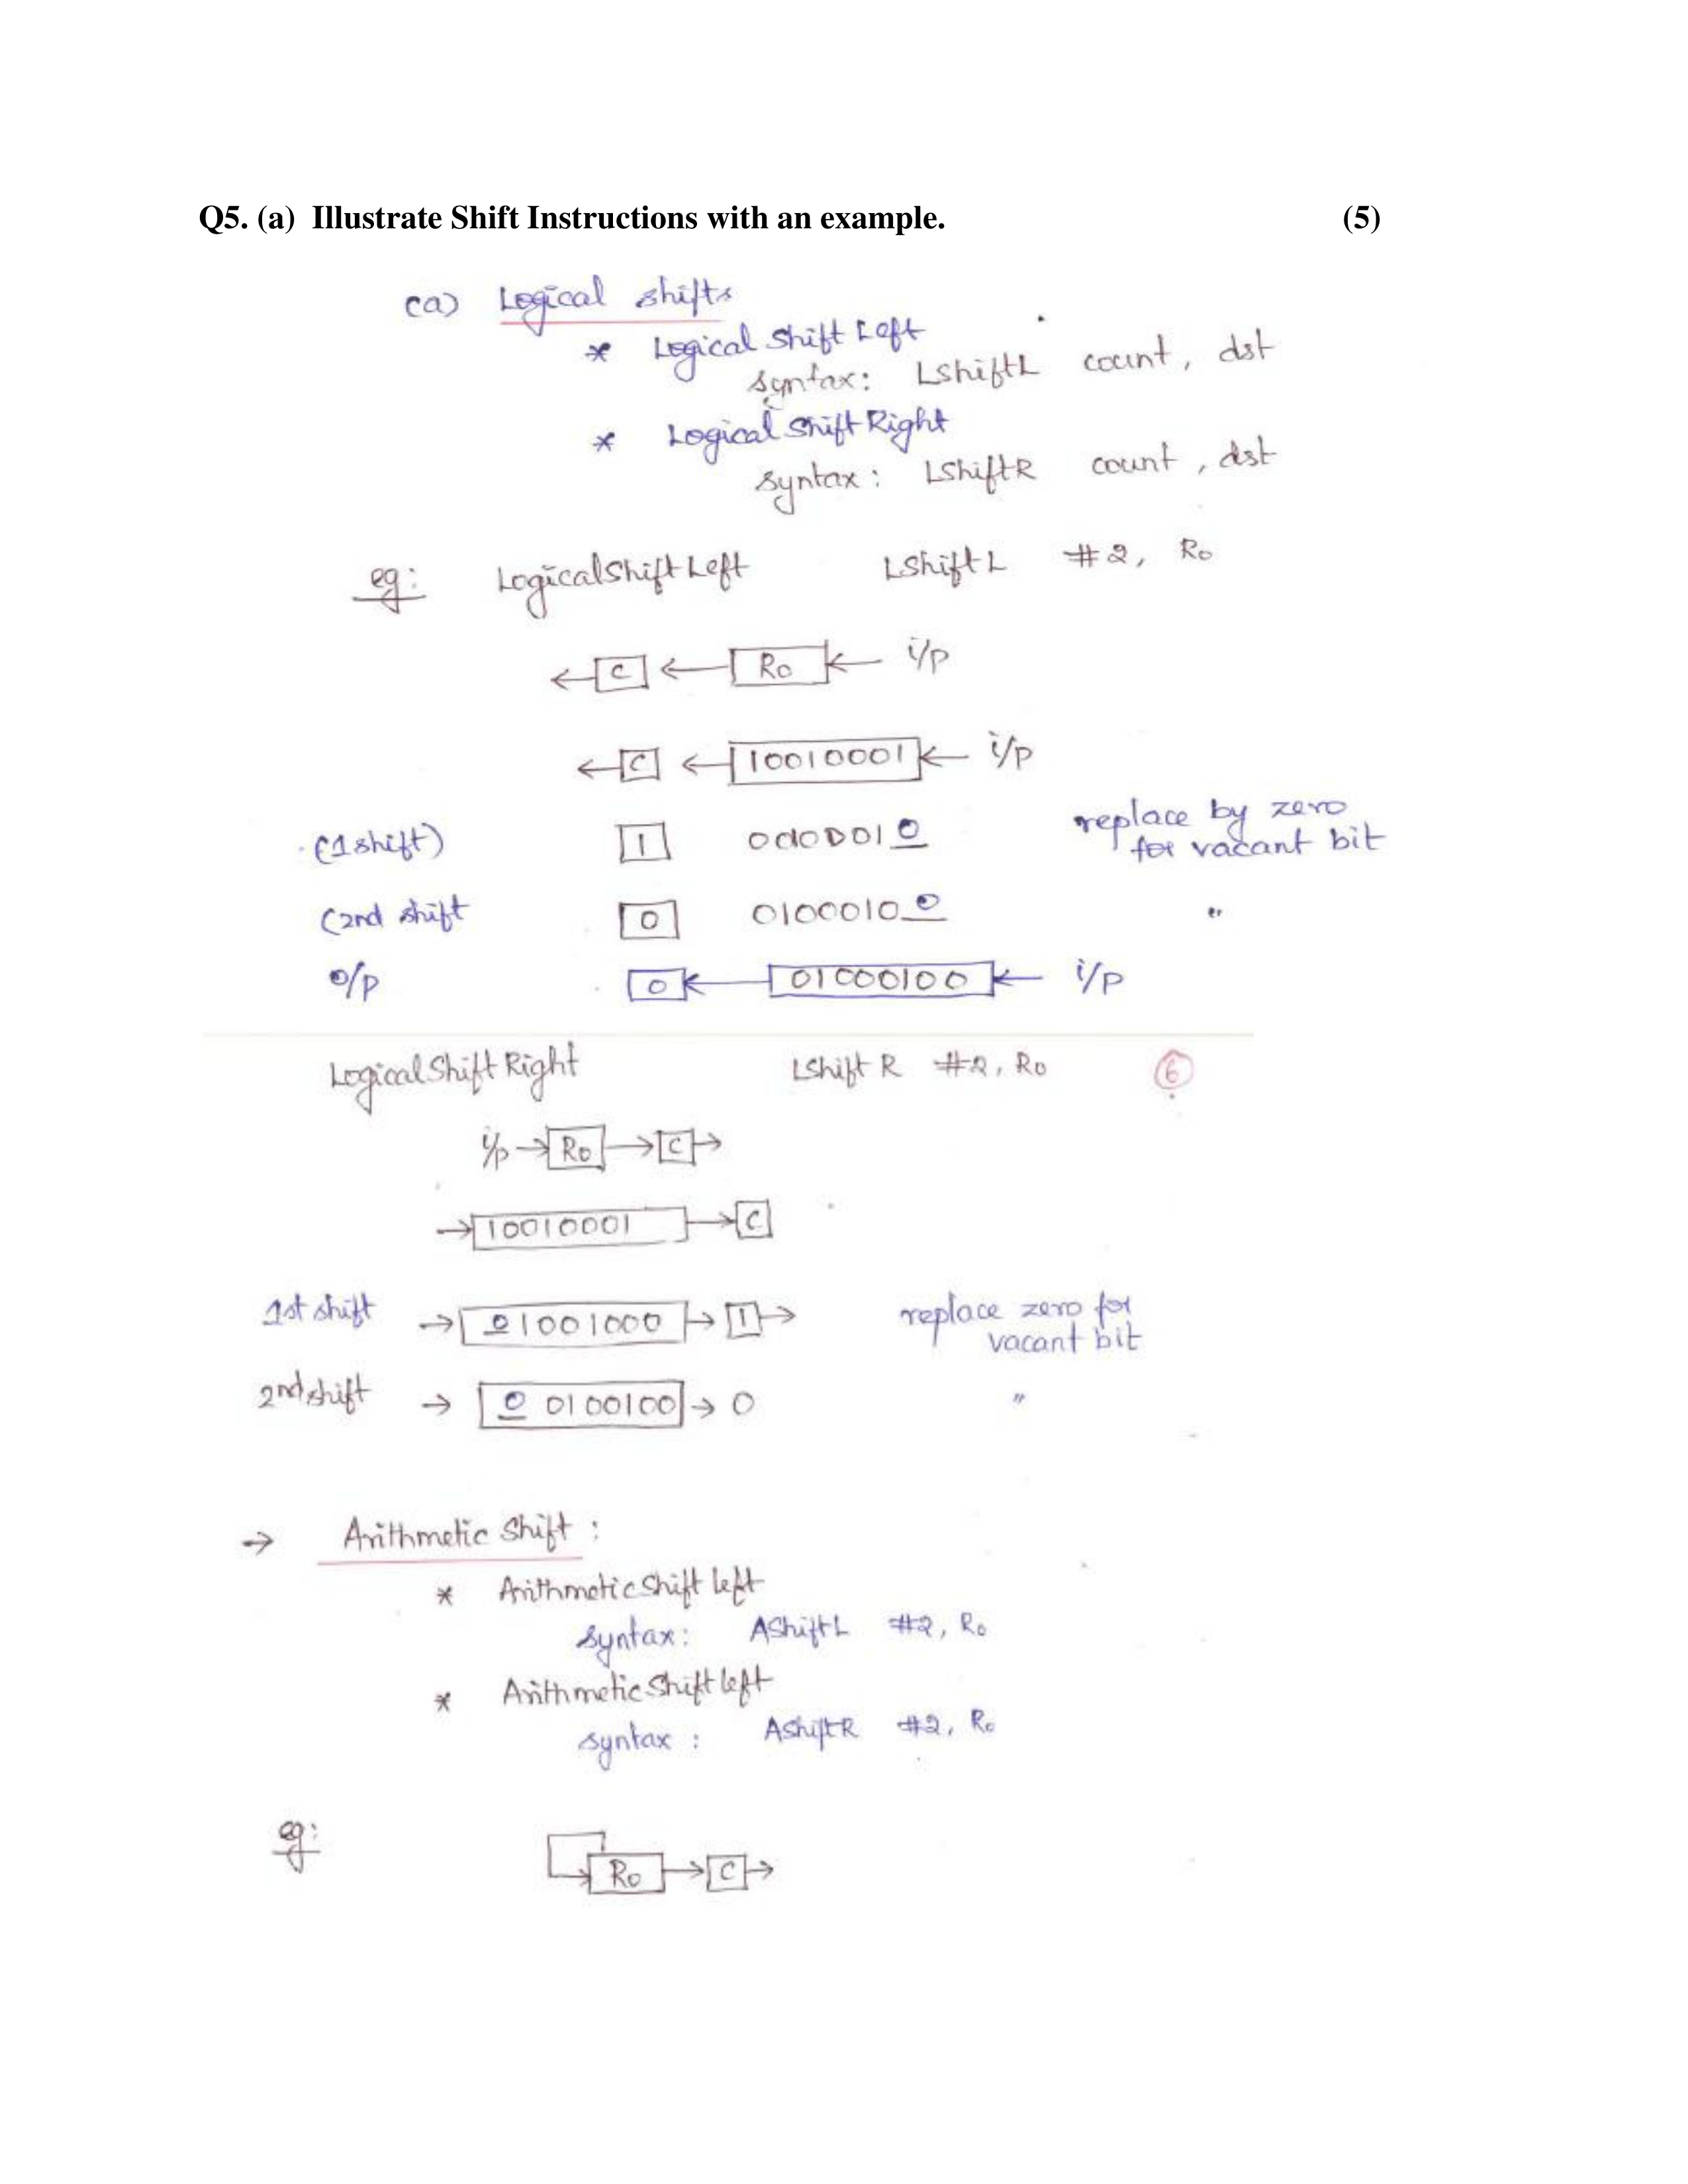 Q5. (a) Illustrate Shift Instructions with an example. (5)
(a) Logical shifts
* Logical Shift Left
syntax: LShiftL count, dst
* Logical Shift Right
syntax: LShiftR count, dst
eg: LogicalShiftLeft LShiftL #2, R0
← C ← R0 ← i/p
← C ← 10010001 ← i/p
(1 shift) 1 00100010 replace by zero
for vacant bit
(2nd shift 0 01000100 "
o/p 0 ← 01000100 ← i/p
LogicalShiftRight LShiftR #2, R0 6
i/p → R0 → C →
→ 10010001 → C
1st shift → 01001000 → 1 → replace zero for
vacant bit
2nd shift → 00100100 → 0 "
→ Arithmetic Shift :
* ArithmeticShift left
syntax: AShiftL #2, R0
* ArithmeticShift left
syntax : AShiftR #2, R0
eg:
R0 → C →